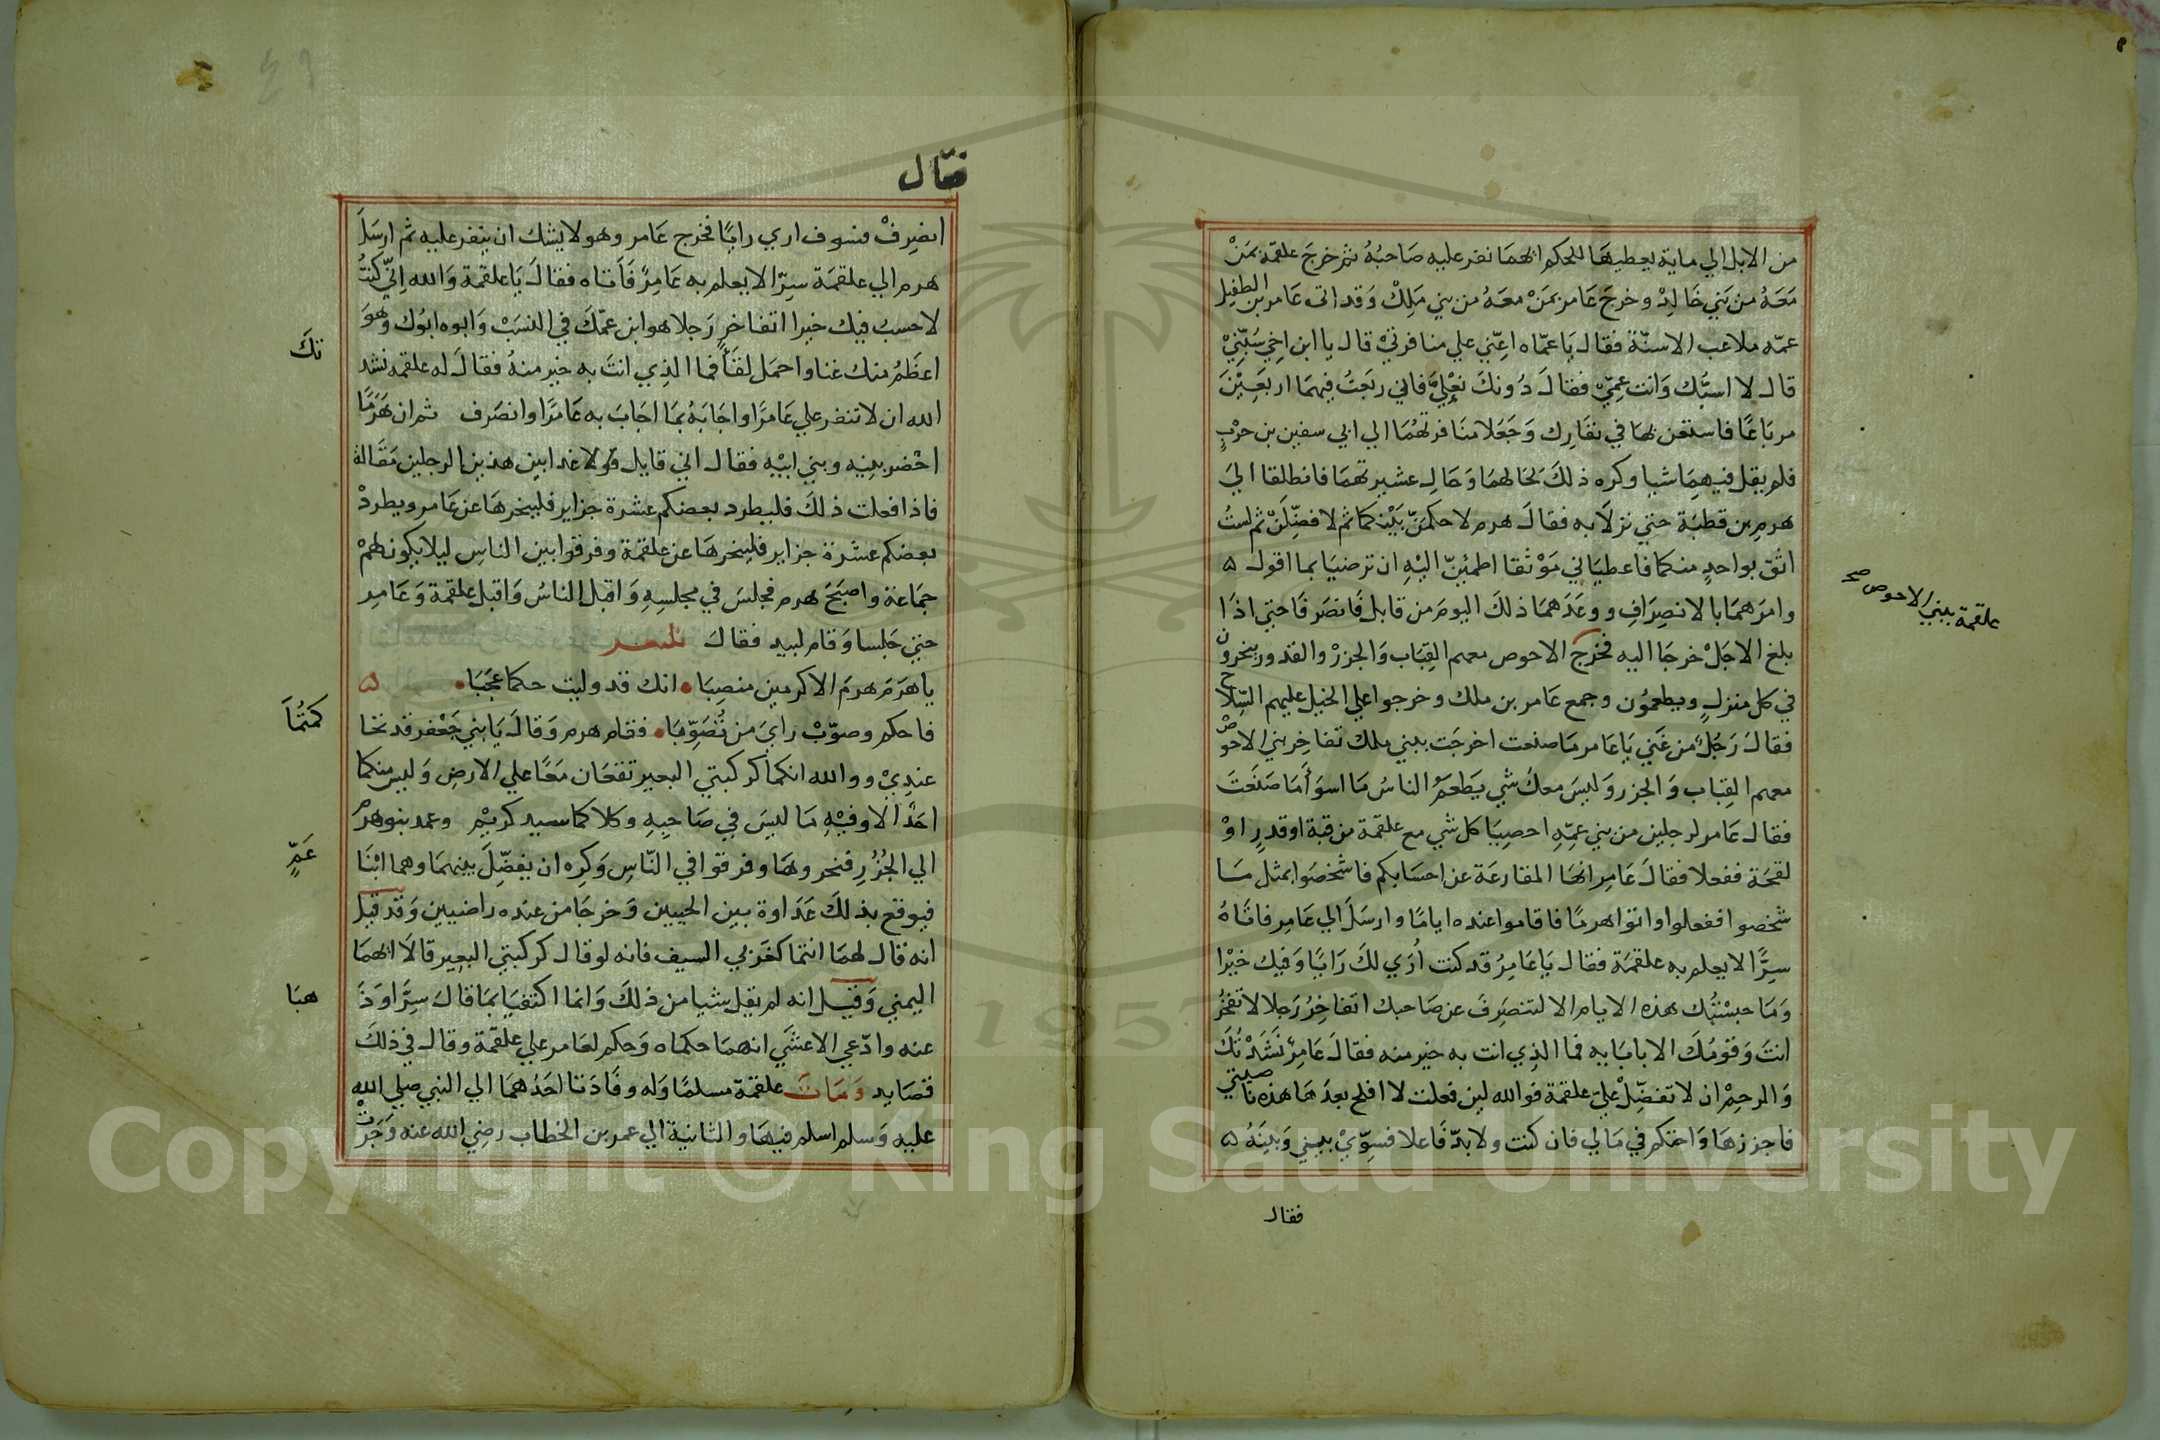 من الابل الي ماية يعطيها للحكم ايهما نفر عليه صاحبُهُ ثم خرجَ علقمة بمَنْ
مَعَهُ من بَني خَالِدْ وخرجَ عَامر بمَنْ معَهُ من بني مَلِكْ وَقد اتى عَامر بن الطفيل
عمّه ملاعب الاسنّة فقال يَا عمّاه اعِنّي علي منافرتيْ قال يا ابن اخي سُبَّنِيْ
قال لا اسبُّك وَانت عمِّيْ فقالَ دُونكَ نعْلِيَّ فاني ربَعتُ فيهمَا اربَعِيْنَ
مربَاعًا فاستعن بها في نفَارك وَجَعَلا منَافرتهُمَا الي ابي سفين بن حرْبٍ
فلم يقل فيهِمَا شيا وكره ذلكَ لحَالهمَا وَحَالِ عشيرتهمَا فانطلقا اليَ
هرم بن قطبَة حتي نزلَا به فقالَ هرم لاحكمَنّ بَيْنكما ثم لافضِّلَنْ ثم لستُ
اثق بواحدٍ منكما فاعطيَاني مَوْثقا اطمئِنّ اليْهِ ان ترضيَا بما اقول ه
وامرَهمَا بالانصِرَافِ ووعَدَهمَا ذلكَ اليومَ من قابل فَانصَرفَا حتي اذَا
بلغ الاجَلْ خرجَا اليه فخرج الاحوص معهم القِبَاب وَالجزرْ والقدور ينحرون
علقمة ببني الاحوص صح
في كل منزلٍ ويطعمُون وجمع عَامر بن ملك وخرجوا علي الخيل عليهم السِّلَاح
فقالَ رَجُلٌ من غَني يَا عَامر مَا صنعت اخرجَت ببني ملك تفاخِر بني الاحوصْ
معهم القِبَاب وَالجزر وَليسَ معكَ شي يَطعَمُ الناسُ مَا اسوَأَ مَا صَنَعتَ
فقال عَامر لرجلين من بني عمِّهِ احصِيَا كل شي مع علقمة من قبة او قدرٍ اوْ
لقحَة ففعلا فقالَ عَامِر انها المقارعَة عن احسَابكم فاشخصُوا بمثل مَا
شخصوا ففعلوا واتوا هرمًا فاقاموا عنده ايامًا وارسَلَ الي عَامِر فاتاهُ
سِرًّا لا يعلم به علقمَة فقال يَا عَامِرُ قد كنت أُرَي لكَ رَايًا وَفيك خيْرًا
وَمَا حبسْتُك هذه الايام الا لتنصَرِفَ عن صَاحبك اتفاخِرُ رَجلا لا تفخرُ
انتَ وَقومُكَ الا بابَايِه فما الذِي انت به خير منه فقالَ عَامِرٌ نَشَدْتُكَ
وَالرحِمْ ان لا تفضِّلْ عليّ علقمة فوالله لين فعلت لا افلح بعدَهَا هذه ناصيتي
فاجززهَا وَاحتكم في مَالي فان كنت ولابدّ فَاعلا فسوِّيْ بيني وَبينَهُ ه
فقال
فقال
انصَرِفْ فسوف اري رايًا فخرج عَامر وهو لا يشك ان ينفر عليه ثم ارسَلَ
هرم الي علقمَة سِرًّا لا يعلم به عَامِرٌ فَأَتاه فقالَ يَا علقمة وَالله اِنّي كنتُ
لاحسبُ فيك خيرا اتفاخر رَجلا هو ابن عمّكَ في النسَبْ وَابوه ابوُك وَهوَ
تكَ
اعظَمُ منك غنا واحمَل لقَأً فما الذِي انتَ به خير منهُ فقالَ له علقمه نشد
الله ان لا تنفر علي عَامرًا واجَابَهُ بمَا اجَابَ به عَامرًا وانصَرف ثم ان هَرَمًا
احْضر بنِيه وبني ابيْه فقال اني قايل قولا غدا بين هذين الرجلين مَقَالة
فاذا فعلت ذلكَ فليطرد بعضكم عشرة جزاير فلينحرهَا عن عَامر ويطردْ
بعضكم عشرة جزاير فلينحرهَا عن علقمة وفرقوا بين الناسِ ليلا يكونَ لهمْ
جمَاعة واصبَحَ هرم فجلسَ في مجلسِهِ وَاقبل الناسُ وَاقبل علقمة وَعَامِر
حتي جَلسا وَقام لبيد فقالَ شعر
يا هَرَمَ هرمَ الاكرمين منصِبَا • انك قد وليت حكما عجَبَا • ه
فاحكم وصوّبْ رايَ من تُصَوِّبَا • فقام هرم وَقالَ يَا بني جَعْفر قد تحا
كَمتُمَا
عندِيْ ووالله انكما كركبتي البعير تقعَان مَعًا علي الارضِ وَليس منكما
احَدٌ الا وفيْهِ مَا ليسَ في صَاحِبِهِ وكلاكما سيد كريم وعمد بنو هرَم
الي الجُزُرِ فنحروهَا وفرقوا في النّاسِ وَكرِه ان يفضِّلَ بينهمَا وهما ابْنَا
عَمٍّ
فيوقع بذلكَ عَدَاوة بين الحيين وَخرجَا من عنده راضيين وَقد قيل
انه قال لهمَا انتما كغربي السيف فانه لو قال كركبتي البعير قالاَ ايهمَا
اليمني وَقيل انه لم يقل شيا من ذلكَ وَانما اكتفيَا بمَا قالَ سِرًّا وَذَ
هبَا
عنه وادّعي الاعشَي انهمَا حكماه وَحكم لعَامر علي علقمة وقال في ذلكَ
قصَايد وَمَاتَ علقمة مسلمًا وَله وفَادَتا احَدُهمَا الي النبي صلي الله
عليه وَسلم اسلم فيهَا والثانية الي عمر بن الخطاب رضي الله عنه وَجَرتْ
Copyright © King Saud University
1957